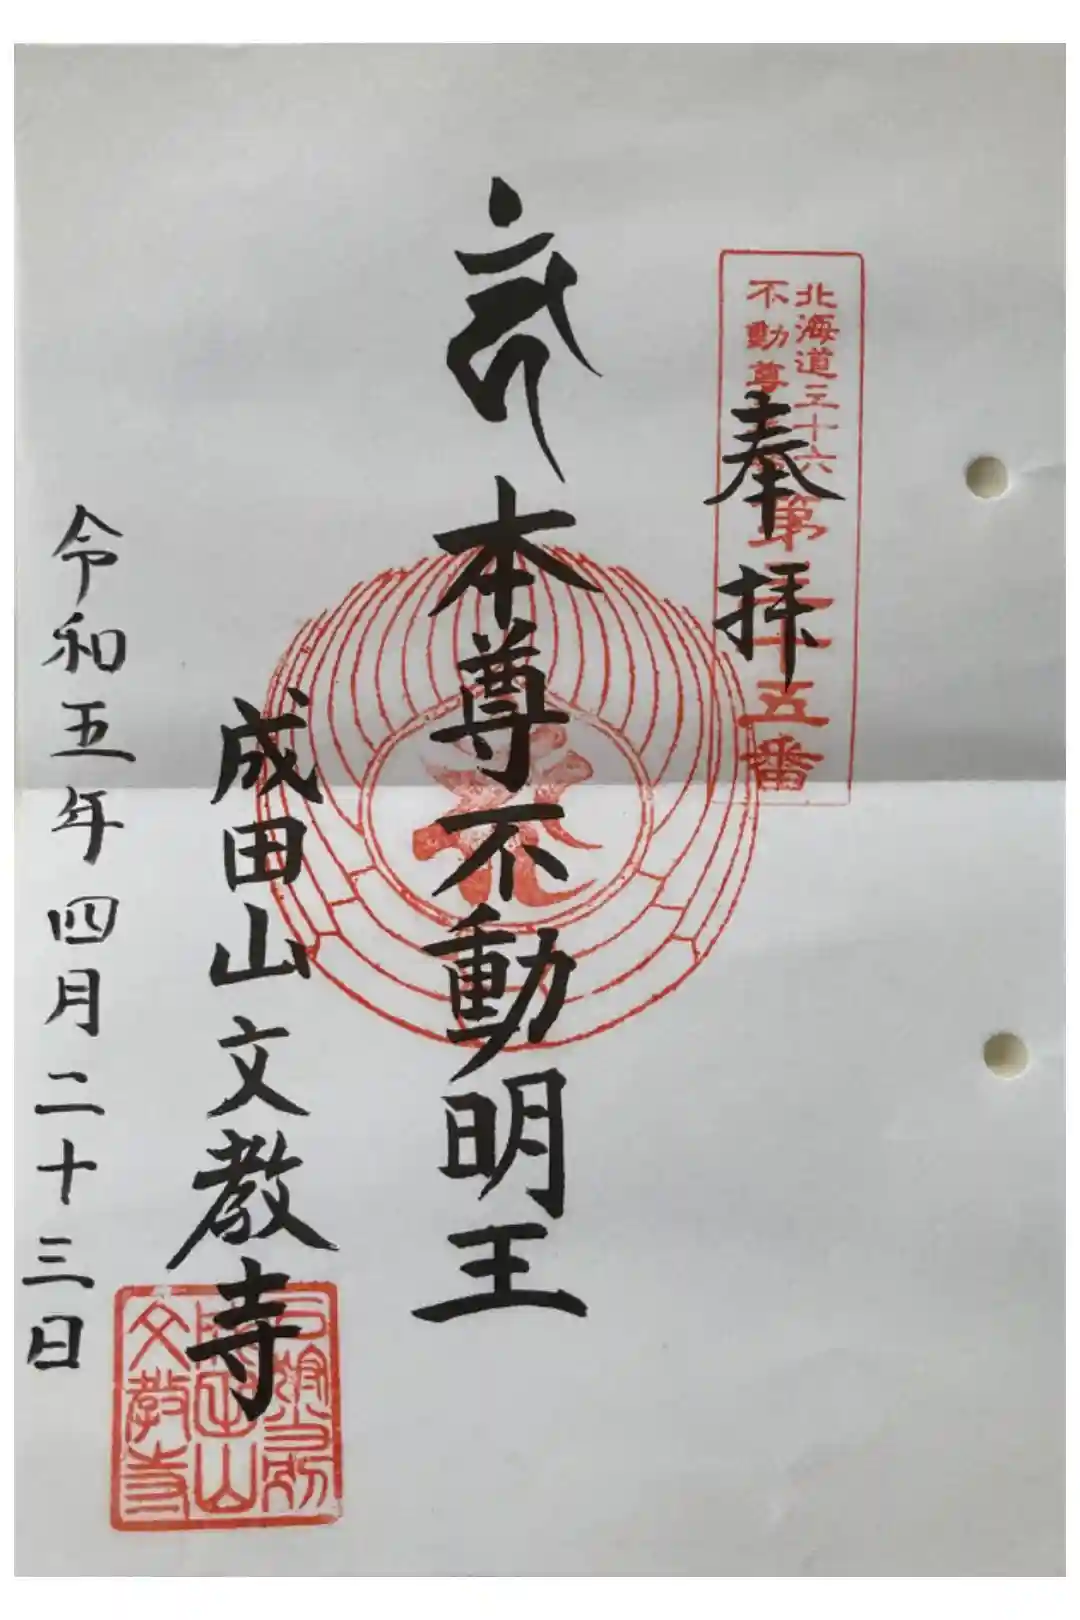 北海道三十六
不動尊
第 十五番
奉拝
本尊不動明王
成田山文教寺
令和五年四月二十三日
成田山
文教寺